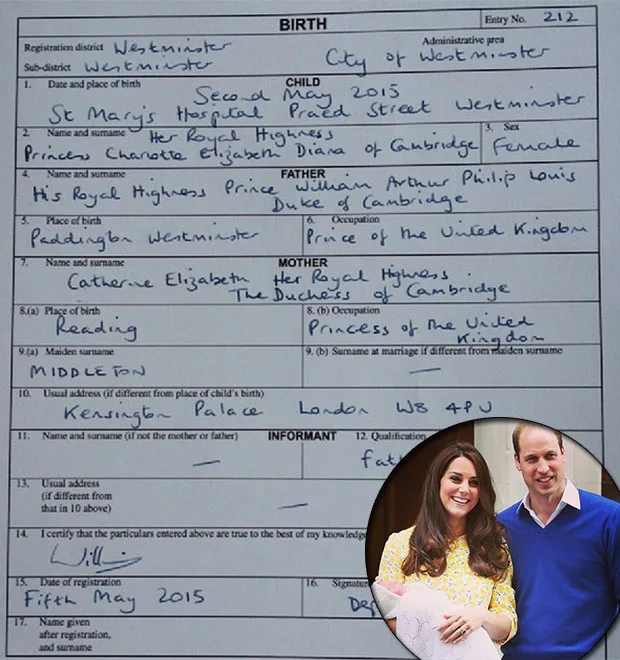 BIRTH
Entry No. 212
Registration district Westminster
Administrative area
Sub-district Westminster
City of Westminster
1. Date and place of birth
CHILD
Second May 2015
St Mary's Hospital Praed Street Westminster
2. Name and surname Her Royal Highness
Princess Charlotte Elizabeth Diana of Cambridge
3. Sex
Female
4. Name and surname
FATHER
His Royal Highness Prince William Arthur Philip Louis
Duke of Cambridge
5. Place of birth
Paddington Westminster
6. Occupation
Prince of the United Kingdom
7. Name and surname
MOTHER
Catherine Elizabeth Her Royal Highness
The Duchess of Cambridge
8.(a) Place of birth
Reading
8. (b) Occupation
Princess of the United
Kingdom
9.(a) Maiden surname
MIDDLETON
9. (b) Surname at marriage if different from maiden surname
—
10. Usual address (if different from place of child's birth)
Kensington Palace London W8 4PU
11. Name and surname (if not the mother or father)
INFORMANT
—
12. Qualification
13. Usual address
(if different from
that in 10 above)
—
14. I certify that the particulars entered above are true to the best of my knowledge
15. Date of registration
Fifth May 2015
16.
17. Name given
after registration,
and surname